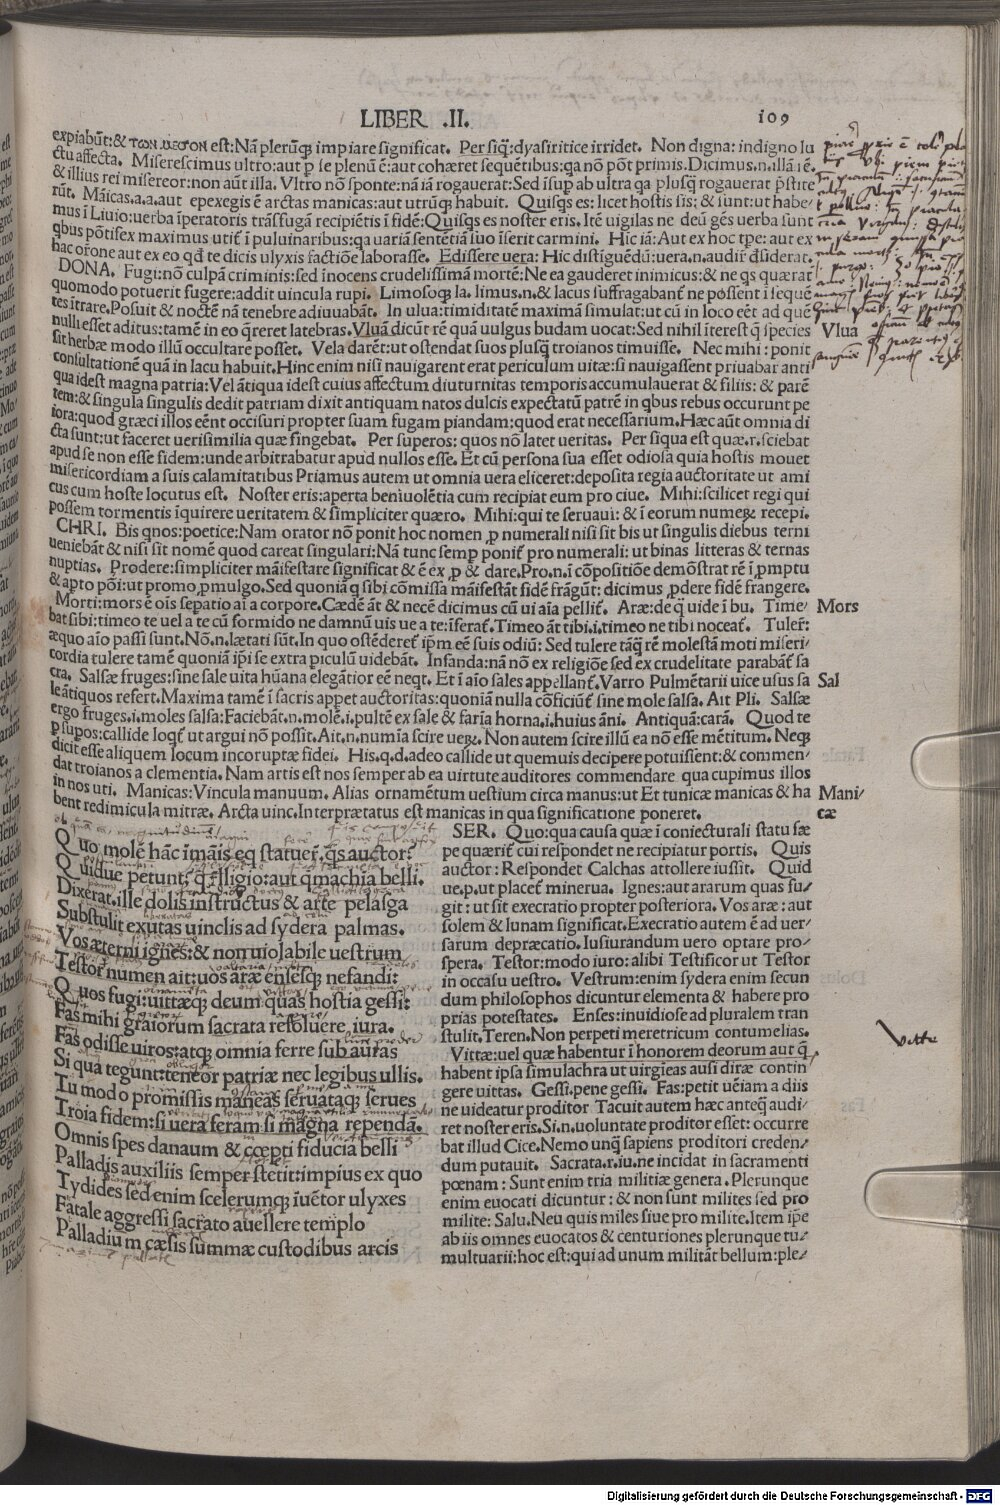 LIBER .II. 109
expiabūt:& των μεσον est:Nā plerūq impiare significat. Per siq:dyasiritice irridet. Non digna: indigno lu
ctu affecta. Miserescimus ultro:aut p se plenū ē:aut cohæret sequētibus:qa nō pōt primis.Dicimus.n.illā:ē.
& illius rei misereor:non aūt illa. Vltro nō sponte:nā iā rogauerat:Sed īsup ab ultra qa plusq rogauerat pstite
rūt. Māicas.a.a.aut epexegis ē arctas manicas:aut utrūq habuit. Quisqs es: licet hostis sis: & sunt:ut habe-
mus ī Liuio:uerba īperatoris trāsfugā recipiētis ī fidē:Quisqs es noster eris. Itē uigilas ne deū gēs uerba sunt
qbus pōtifex maximus utit ī puluinaribus:qa uariā sentētiā suo īserit carmini. Hic iā:Aut ex hoc tpe: aut ex
hac orōne aut ex eo qd te dicis ulyxis factiōe laborasse. Edissere uera: Hic distiguēdū:uera.n.audir dsiderat.
DONA. Fugi:nō culpā criminis:sed īnocens crudelissimā mortē:Ne ea gauderet inimicus:& ne qs quærat
quomodo potuerit fugere:addit uincula rupi. Limosoq la. limus.n.& lacus suffragabant ne possent ī sequē
tes itrare.Posuit & noctē nā tenebre adiuuabāt. In ulua:timiditatē maximā simulat:ut cū in loco eēt ad quē
nulli esset aditus:tamē in eo qreret latebras.Vluā dicūt rē quā uulgus budam uocat:Sed nihil īterest q species Vlua
sit herbæ modo illū occultare posset. Vela darēt:ut ostendat suos plusq troianos timuisse. Nec mihi : ponit
consultationē quā in lacu habuit.Hinc enim nisī nauigarent erat periculum uitæ:si nauigassent priuabar anti
qua idest magna patria:Vel ātiqua idest cuius affectum diuturnitas temporis accumulauerat & filiis: & parē
tem:& singula singulis dedit patriam dixit antiquam natos dulcis expectatū patrē in qbus rebus occurunt pe
iora:quod græci illos eēnt occisuri propter suam fugam piandam:quod erat necessarium.Hæc aūt omnia di
cta sunt:ut faceret uerisimilia quæ fingebat. Per superos: quos nō latet ueritas. Per siqua est quæ.r.sciebat
apud se non esse fidem:unde arbitrabatur apud nullos esse. Et cū persona sua esset odiosa quia hostis mouet
misericordiam a suis calamitatibus Priamus autem ut omnia uera eliceret:deposita regia auctoritate ut ami
cus cum hoste locutus est. Noster eris:aperta beniuolētia cum recipiat eum pro ciue. Mihi:scilicet regi qui
possem tormentis īquirere ueritatem & simpliciter quæro. Mihi:qui te seruaui: & ī eorum numeꝝ recepi.
CHRI. Bis qnos:poetice:Nam orator nō ponit hoc nomen p numerali nisi sit bis ut singulis diebus terni
ueniebāt & nisi sit nomē quod careat singulari:Nā tunc semp ponit pro numerali: ut binas litteras & ternas
nuptias. Prodere:simpliciter māifestare significat & ē ex p & dare.Pro.n.ī cōpositiōe demōstrat rē ī pmptu
& apto pōi:ut promo pmulgo.Sed quoniā q sibi cōmissa māifestāt fidē frāgūt: dicimus pdere fidē frangere.
Morti:mors ē ois sepatio ai a corpore.Cædē āt & necē dicimus cū ui aīa pellit. Aræ:de q uide ī bu. Time- Mors
bat sibi:timeo te uel a te cū formido ne damnū uis ue a te:īferat.Timeo āt tibi.i.timeo ne tibi noceat. Tuler:
æquo aīo passi sunt.Nō.n.lætati sūt.In quo ostēderet ipm eē suis odiū: Sed tulere tāq rē molestā moti miseri-
cordia tulere tamē quoniā ipi se extra piculū uidebāt. Infanda:nā nō ex religiōe sed ex crudelitate parabāt sa
cra. Salsæ fruges:sine sale uita hūana elegātior eē neqt. Et ī aīo sales appellant.Varro Pulmētarii uice usus sa Sal
le ātiquos refert.Maxima tamē ī sacris appet auctoritas:quoniā nulla cōficiūt sine mole salsa. Ait Pli. Salsæ
ergo fruges.i.moles salsa:Faciebāt.n.molē.i.pultē ex sale & farīa horna.i.huius āni. Antiquā:carā. Quod te
p supos:callide loqt ut argui nō possit.Ait.n.numīa scire ueꝝ.Non autem scire illū ea nō esse mētitum.Neq
dicit esse aliquem locum incoruptæ fidei. His.q.d.adeo callide ut quemuis decipere potuissent:& commen-
dat troianos a clementia. Nam artis est nos semper ab ea uirtute auditores commendare qua cupimus illos
in nos uti. Manicas:Vincula manuum. Alias ornamētum uestium circa manus:ut Et tunicæ manicas & ha Mani-
bent redimicula mitræ. Arcta uinc.Interprætatus est manicas in qua significatione poneret. cæ
Quo molē hāc īmāis eq statuer: qs auctor:
Quidue petunt: q relligio:aut q machia belli.
Dixerat.ille dolis instructus & arte pelasga
Substulit exutas uinclis ad sydera palmas.
Vos æterni ignes:& non uiolabile uestrum
Testor numen ait:uos aræ ensesq nefandi:
Quos fugi:uittæq deum quas hostia gessi:
Fas mihi graiorum sacrata resoluere iura.
Fas odisse uiros:atq omnia ferre sub auras
Si qua tegunt:teneor patriæ nec legibus ullis.
Tu modo promissis maneas seruataq serues
Troia fidem:si uera feram:si magna rependā.
Omnis spes danaum & cœpti fiducia belli
Palladis auxiliis semper stetit:impius ex quo
Tydides sed enim scelerumq iuētor ulyxes
Fatale aggressi sacrato auellere templo
Palladium cæsis summæ custodibus arcis
SER. Quo:qua causa quæ ī coniecturali statu sæ
pe quærit cui respondet ne recipiatur portis. Quis
auctor: Respondet Calchas attollere iussit. Quid
ue.p.ut placet minerua. Ignes:aut ararum quas fu-
git: ut sit execratio propter posteriora. Vos aræ: aut
solem & lunam significat.Execratio autem ē ad uer-
sarum depræcatio. Iusiurandum uero optare pro-
spera. Testor:modo iuro: alibi Testificor ut Testor
in occasu uestro. Vestrum:enim sydera enim secun
dum philosophos dicuntur elementa & habere pro
prias potestates. Enses:inuidiose ad pluralem tran
stulit.Teren.Non perpeti meretricum contumelias.
Vittæ:uel quæ habentur ī honorem deorum aut q
habent ipsa simulachra ut uirgieas ausi diræ contin
gere uittas. Gessi.pene gessi. Fas:petit uēiam a diis
ne uideatur proditor Tacuit autem hæc anteq audi-
ret noster eris.Si.n.uoluntate proditor esset: occurre
bat illud Cice.Nemo unq sapiens proditori creden-
dum putauit. Sacrata.r.iu.ne incidat in sacramenti
pœnam : Sunt enim tria militiæ genera.Plerunque
enim euocati dicuntur : & non sunt milites sed pro
milite: Salu.Neu quis miles siue pro milite.Item ipe
ab iis omnes euocatos & centuriones plerunque tu-
multuarii:hoc est:qui ad unum militāt bellum:ple-
Vitte
Digitalisierung gefördert durch die Deutsche Forschungsgemeinschaft - DFG